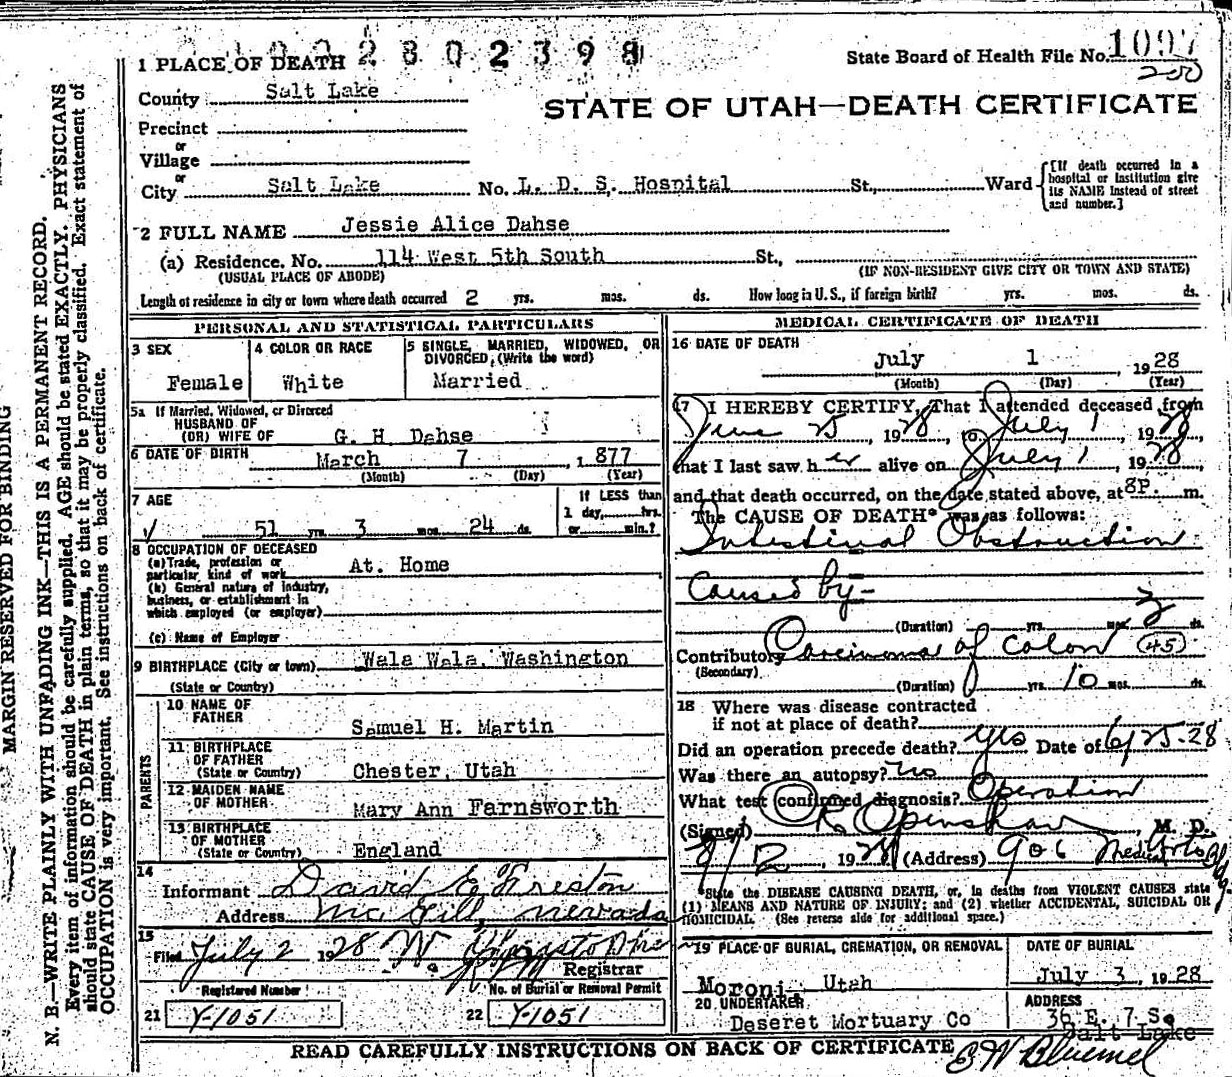 1002802398
State Board of Health File No. 1097
200
1 PLACE OF DEATH
County Salt Lake
STATE OF UTAH—DEATH CERTIFICATE
Precinct
or
Village
or
City Salt Lake No. L. D. S. Hospital St., Ward
[If death occurred in a hospital or institution give its NAME instead of street and number.]
2 FULL NAME Jessie Alice Dahse
(a) Residence, No. 114 West 5th South St.,
(USUAL PLACE OF ABODE) (IF NON-RESIDENT GIVE CITY OR TOWN AND STATE)
Length of residence in city or town where death occurred 2 yrs. mos. ds. How long in U. S., if foreign birth? yrs. mos. ds.
PERSONAL AND STATISTICAL PARTICULARS
3 SEX
Female
4 COLOR OR RACE
White
5 SINGLE, MARRIED, WIDOWED, OR DIVORCED, (Write the word)
Married
5a If Married, Widowed, or Divorced
HUSBAND OF
(OR) WIFE OF G. H. Dahse
6 DATE OF BIRTH March 7, 1877
(Month) (Day) (Year)
7 AGE
51 yrs. 3 mos. 24 ds.
If LESS than
1 day, hrs.
or min.?
8 OCCUPATION OF DECEASED
(a) Trade, profession or
particular kind of work At. Home
(b) General nature of industry,
business, or establishment in
which employed (or employer)
(c) Name of Employer
9 BIRTHPLACE (City or town) Wala Wala, Washington
(State or Country)
PARENTS
10 NAME OF
FATHER Samuel H. Martin
11 BIRTHPLACE
OF FATHER
(State or Country) Chester, Utah
12 MAIDEN NAME
OF MOTHER Mary Ann Farnsworth
13 BIRTHPLACE
OF MOTHER
(State or Country) England
14
Informant David E. Freston
Address McGill, Nevada
15
Filed July 2 1928
Registrar
Registered Number
21 Y-1051
No. of Burial or Removal Permit
22 Y-1051
MEDICAL CERTIFICATE OF DEATH
16 DATE OF DEATH
July 1, 1928
(Month) (Day) (Year)
17 I HEREBY CERTIFY, That I attended deceased from
June 25, 1928, to July 1, 1928
that I last saw her alive on July 1, 1928
and that death occurred, on the date stated above, at 8P. m.
The CAUSE OF DEATH* was as follows:
Intestinal Obstruction
Caused by-
(Duration) yrs. mos. 2 ds.
Contributory Carcinoma of Colon (45)
(Secondary)
(Duration) yrs. 10 mos. ds.
18 Where was disease contracted
if not at place of death?
Did an operation precede death? Yes Date of 6/25-28
Was there an autopsy? no
What test confirmed diagnosis? Operation
(Signed) O R Openshaw, M. D.
7/2, 1928 (Address) 906 Medical Arts Bldg
*State the DISEASE CAUSING DEATH, or, in deaths from VIOLENT CAUSES state
(1) MEANS AND NATURE OF INJURY; and (2) whether ACCIDENTAL, SUICIDAL OR
HOMICIDAL. (See reverse side for additional space.)
19 PLACE OF BURIAL, CREMATION, OR REMOVAL
Moroni, Utah
DATE OF BURIAL
July 3, 1928
20 UNDERTAKER
Deseret Mortuary Co
ADDRESS
36 E. 7 So
Salt Lake
E W Bluemel
READ CAREFULLY INSTRUCTIONS ON BACK OF CERTIFICATE
MARGIN RESERVED FOR BINDING
N. B.—WRITE PLAINLY WITH UNFADING INK—THIS IS A PERMANENT RECORD.
Every item of information should be carefully supplied. AGE should be stated EXACTLY. PHYSICIANS
should state CAUSE OF DEATH in plain terms, so that it may be properly classified. Exact statement of
OCCUPATION is very important. See instructions on back of certificate.